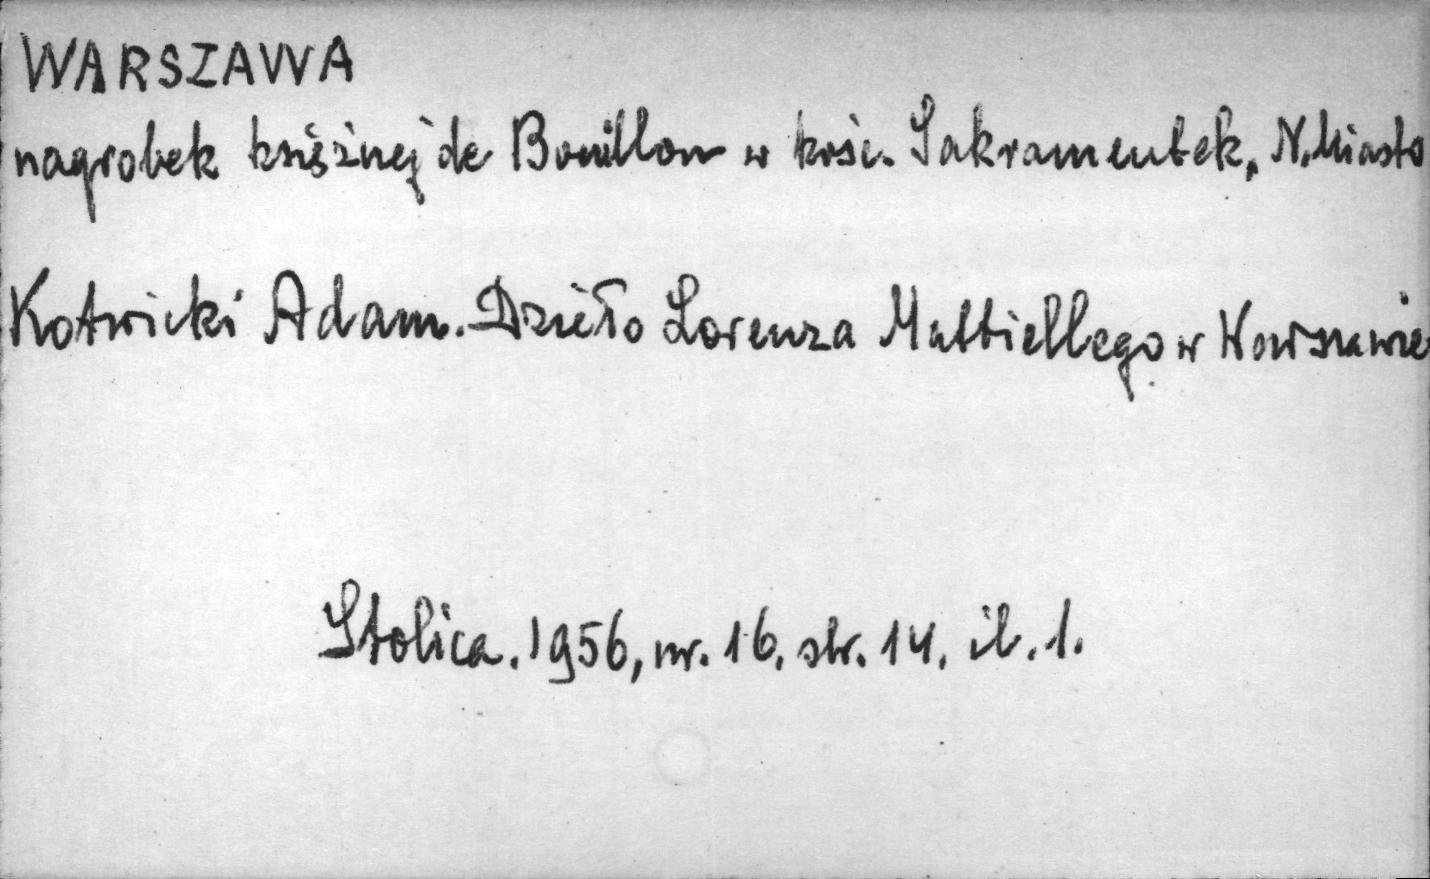 WARSZAWA
nagrobek księżnej de Bouillon w kośc. Sakramentek, N. Miasto
Kotwicki Adam. Dzieło Lorenza Mattiellego w Warszawie
Stolica. 1956, nr. 16, str. 14, il. 1.